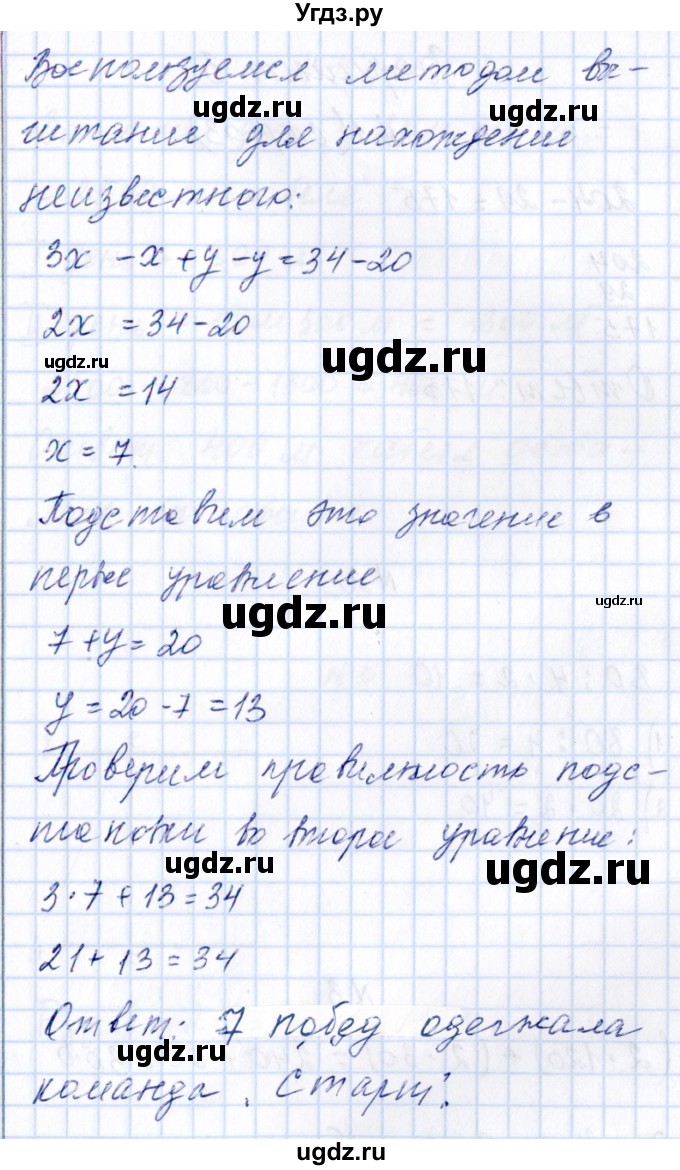 Угдз.ру
Воспользуемся методом вы-
читание для нахождение
неизвестного:
3х - х + у - у = 34 - 20
2х = 34 - 20
2х = 14
х = 7
Подставим это значение в
первое уравнение
7 + у = 20
у = 20 - 7 = 13
Проверим правильность подс-
тановки во второе уравнение:
3 · 7 + 13 = 34
21 + 13 = 34
Ответ: 7 побед одержала
команда "Старт".
ugdz.ru
ugdz.ru
ugdz.ru
ugdz.ru
ugdz.ru
ugdz.ru
ugdz.ru
ugdz.ru
ugdz.ru
ugdz.ru
ugdz.ru
ugdz.ru